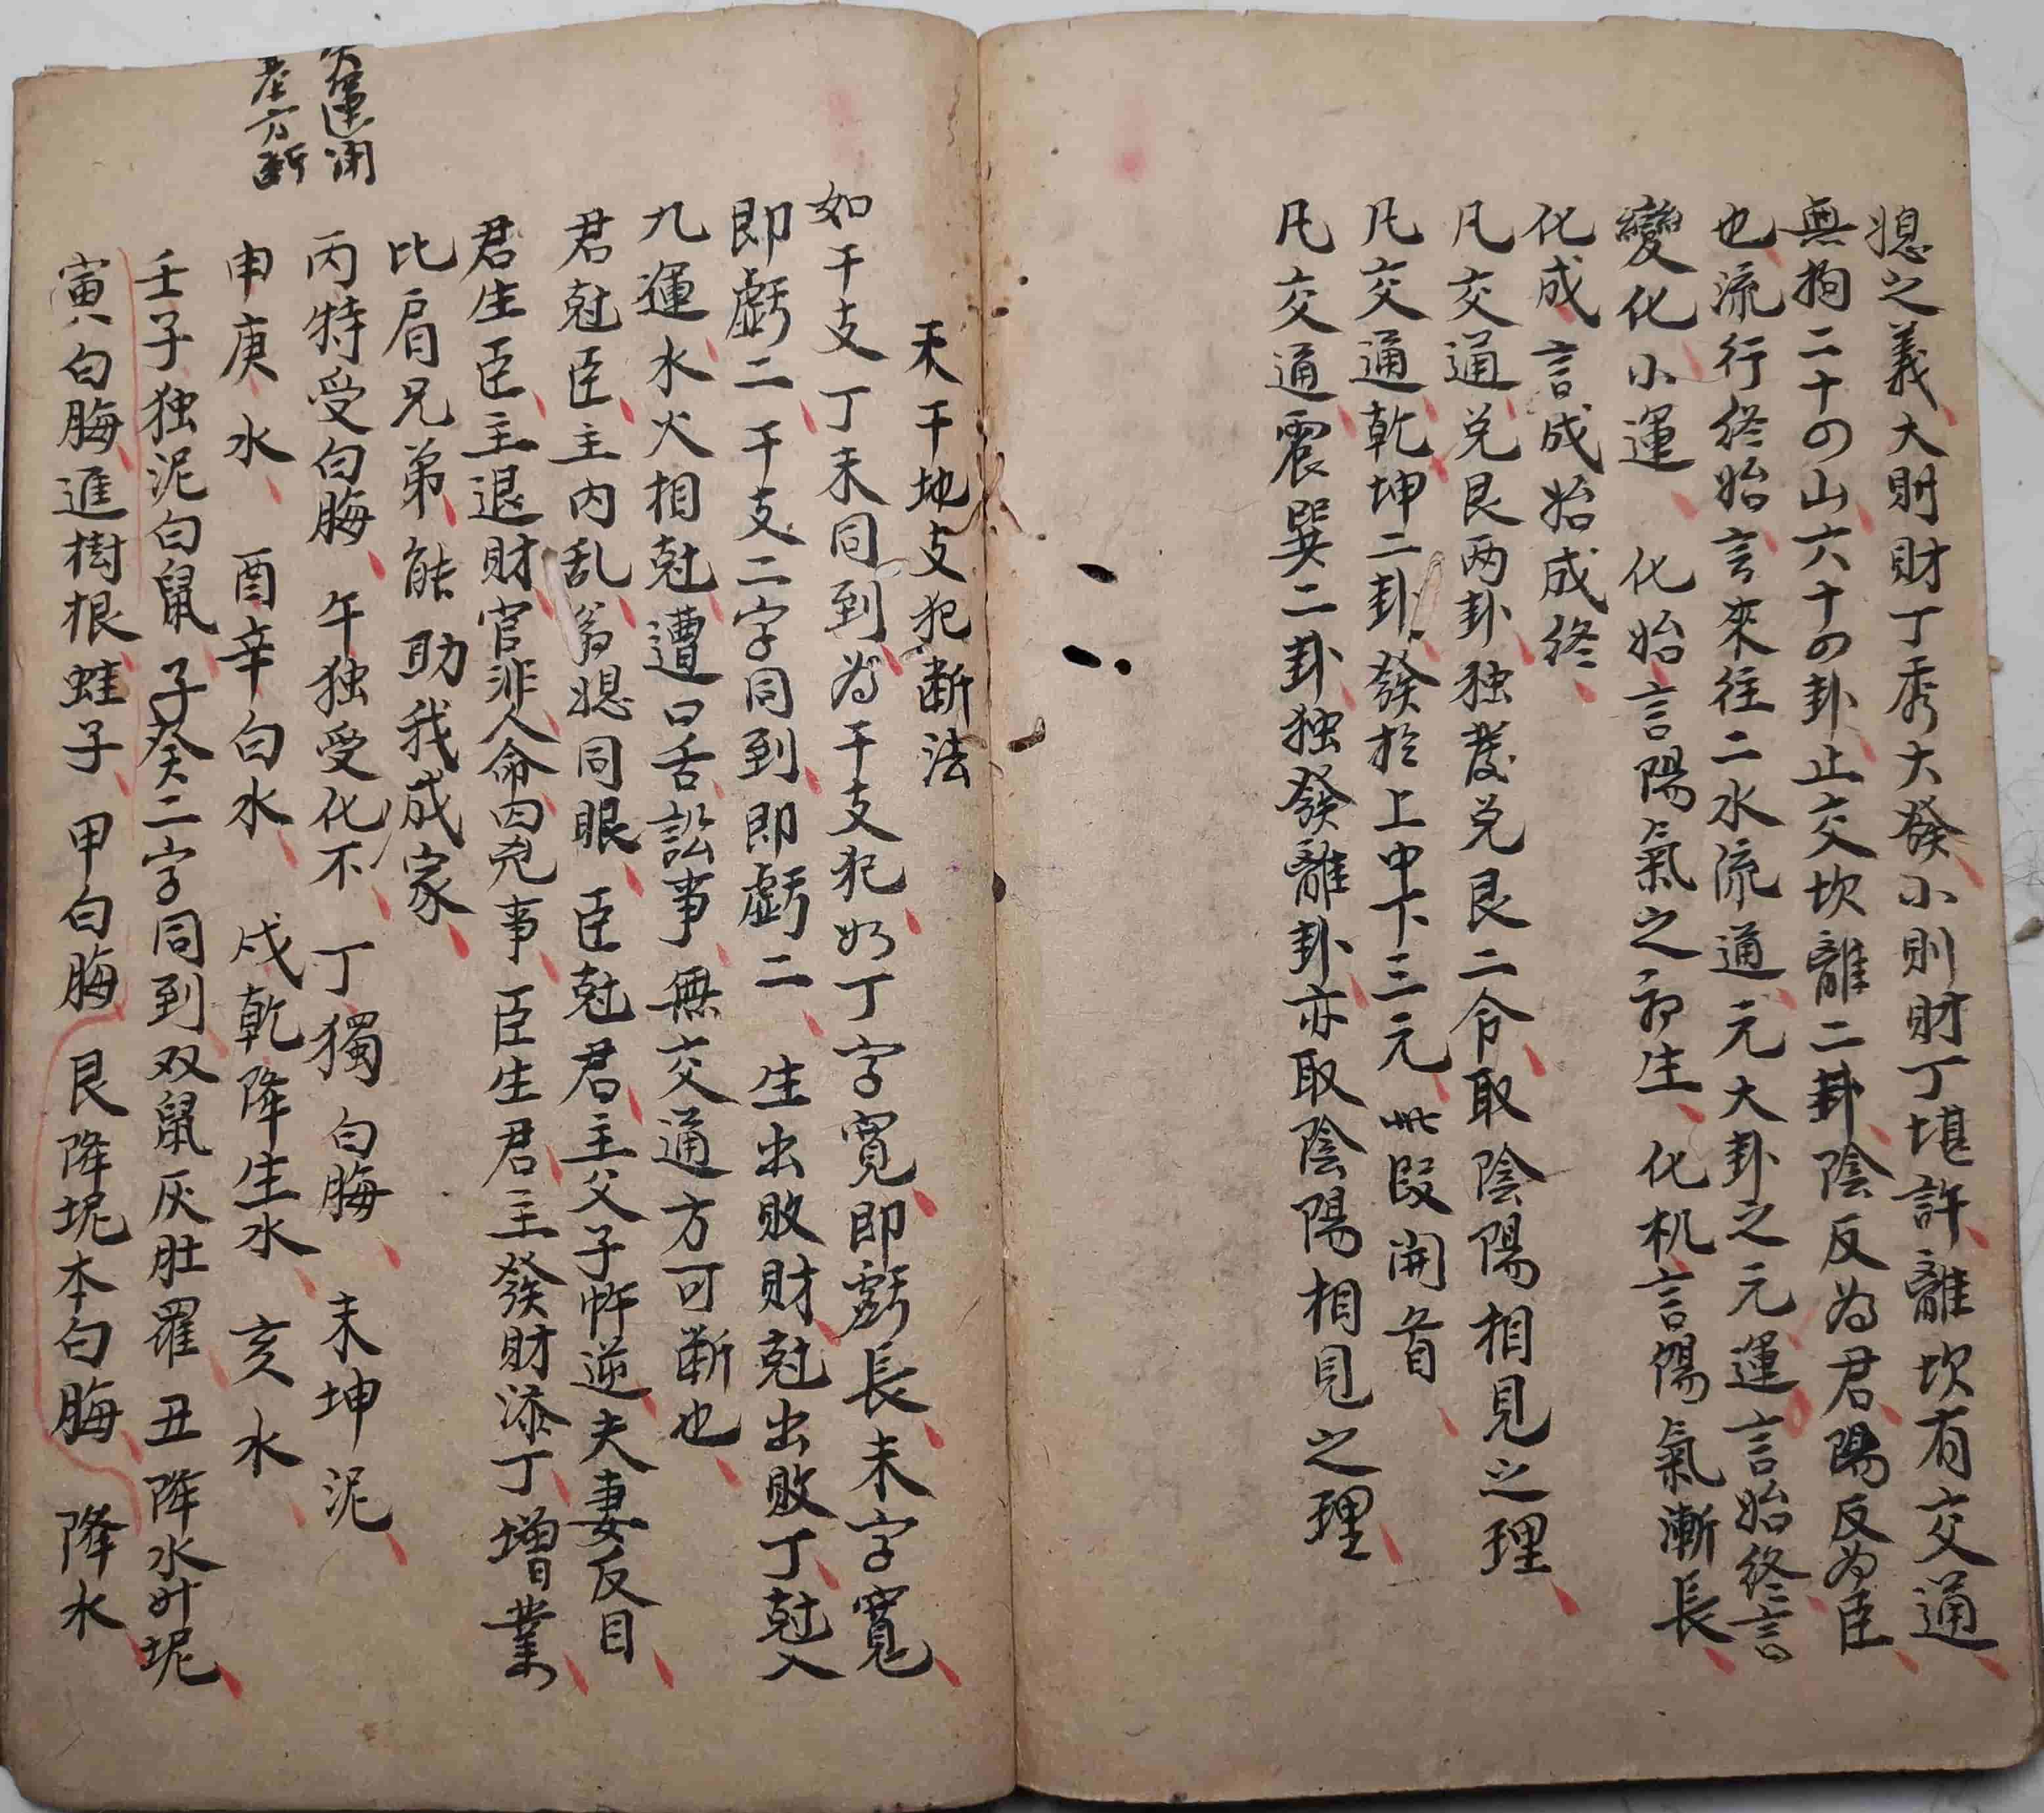 媳之義大則財丁秀大發小則財丁堪許離坎有交通
無拘二十四山六十四卦止交坎離二卦陰反為君陽反為臣
也流行終始言來往二水流通元大卦之元運言始終言
變化小運 化始言陽氣之初生化机言陽氣漸長
化成言成始成終
凡交通兑艮两卦独發兑艮二令取陰陽相見之理
凡交通乾坤二卦發於上中下三元此段開首
凡交通震巽二卦独發離卦亦取陰陽相見之理
天干地支犯断法
如干支丁未同到為干支犯如丁字寬即虧長未字寬
即虧二干支二字同到即虧二 生出敗財尅出敗丁尅入
九運水火相尅遭口舌訟事無交通方可断也
君尅臣主内乱翁媳同眠臣尅君主父子忤逆夫妻反目
君生臣主退財官非人命凶事臣生君主發財添丁增業
比肩兄弟能助我成家
丙特受白脢午独受化不丁獨白脢未坤泥
申庚水 酉辛白水 戍乾降生水 亥水
壬子独泥白鼠子癸二字同到双鼠灰肚羅丑降水泥
寅白脢進樹根蛙子甲白脢艮降坭本白脢 降水
運開
方断